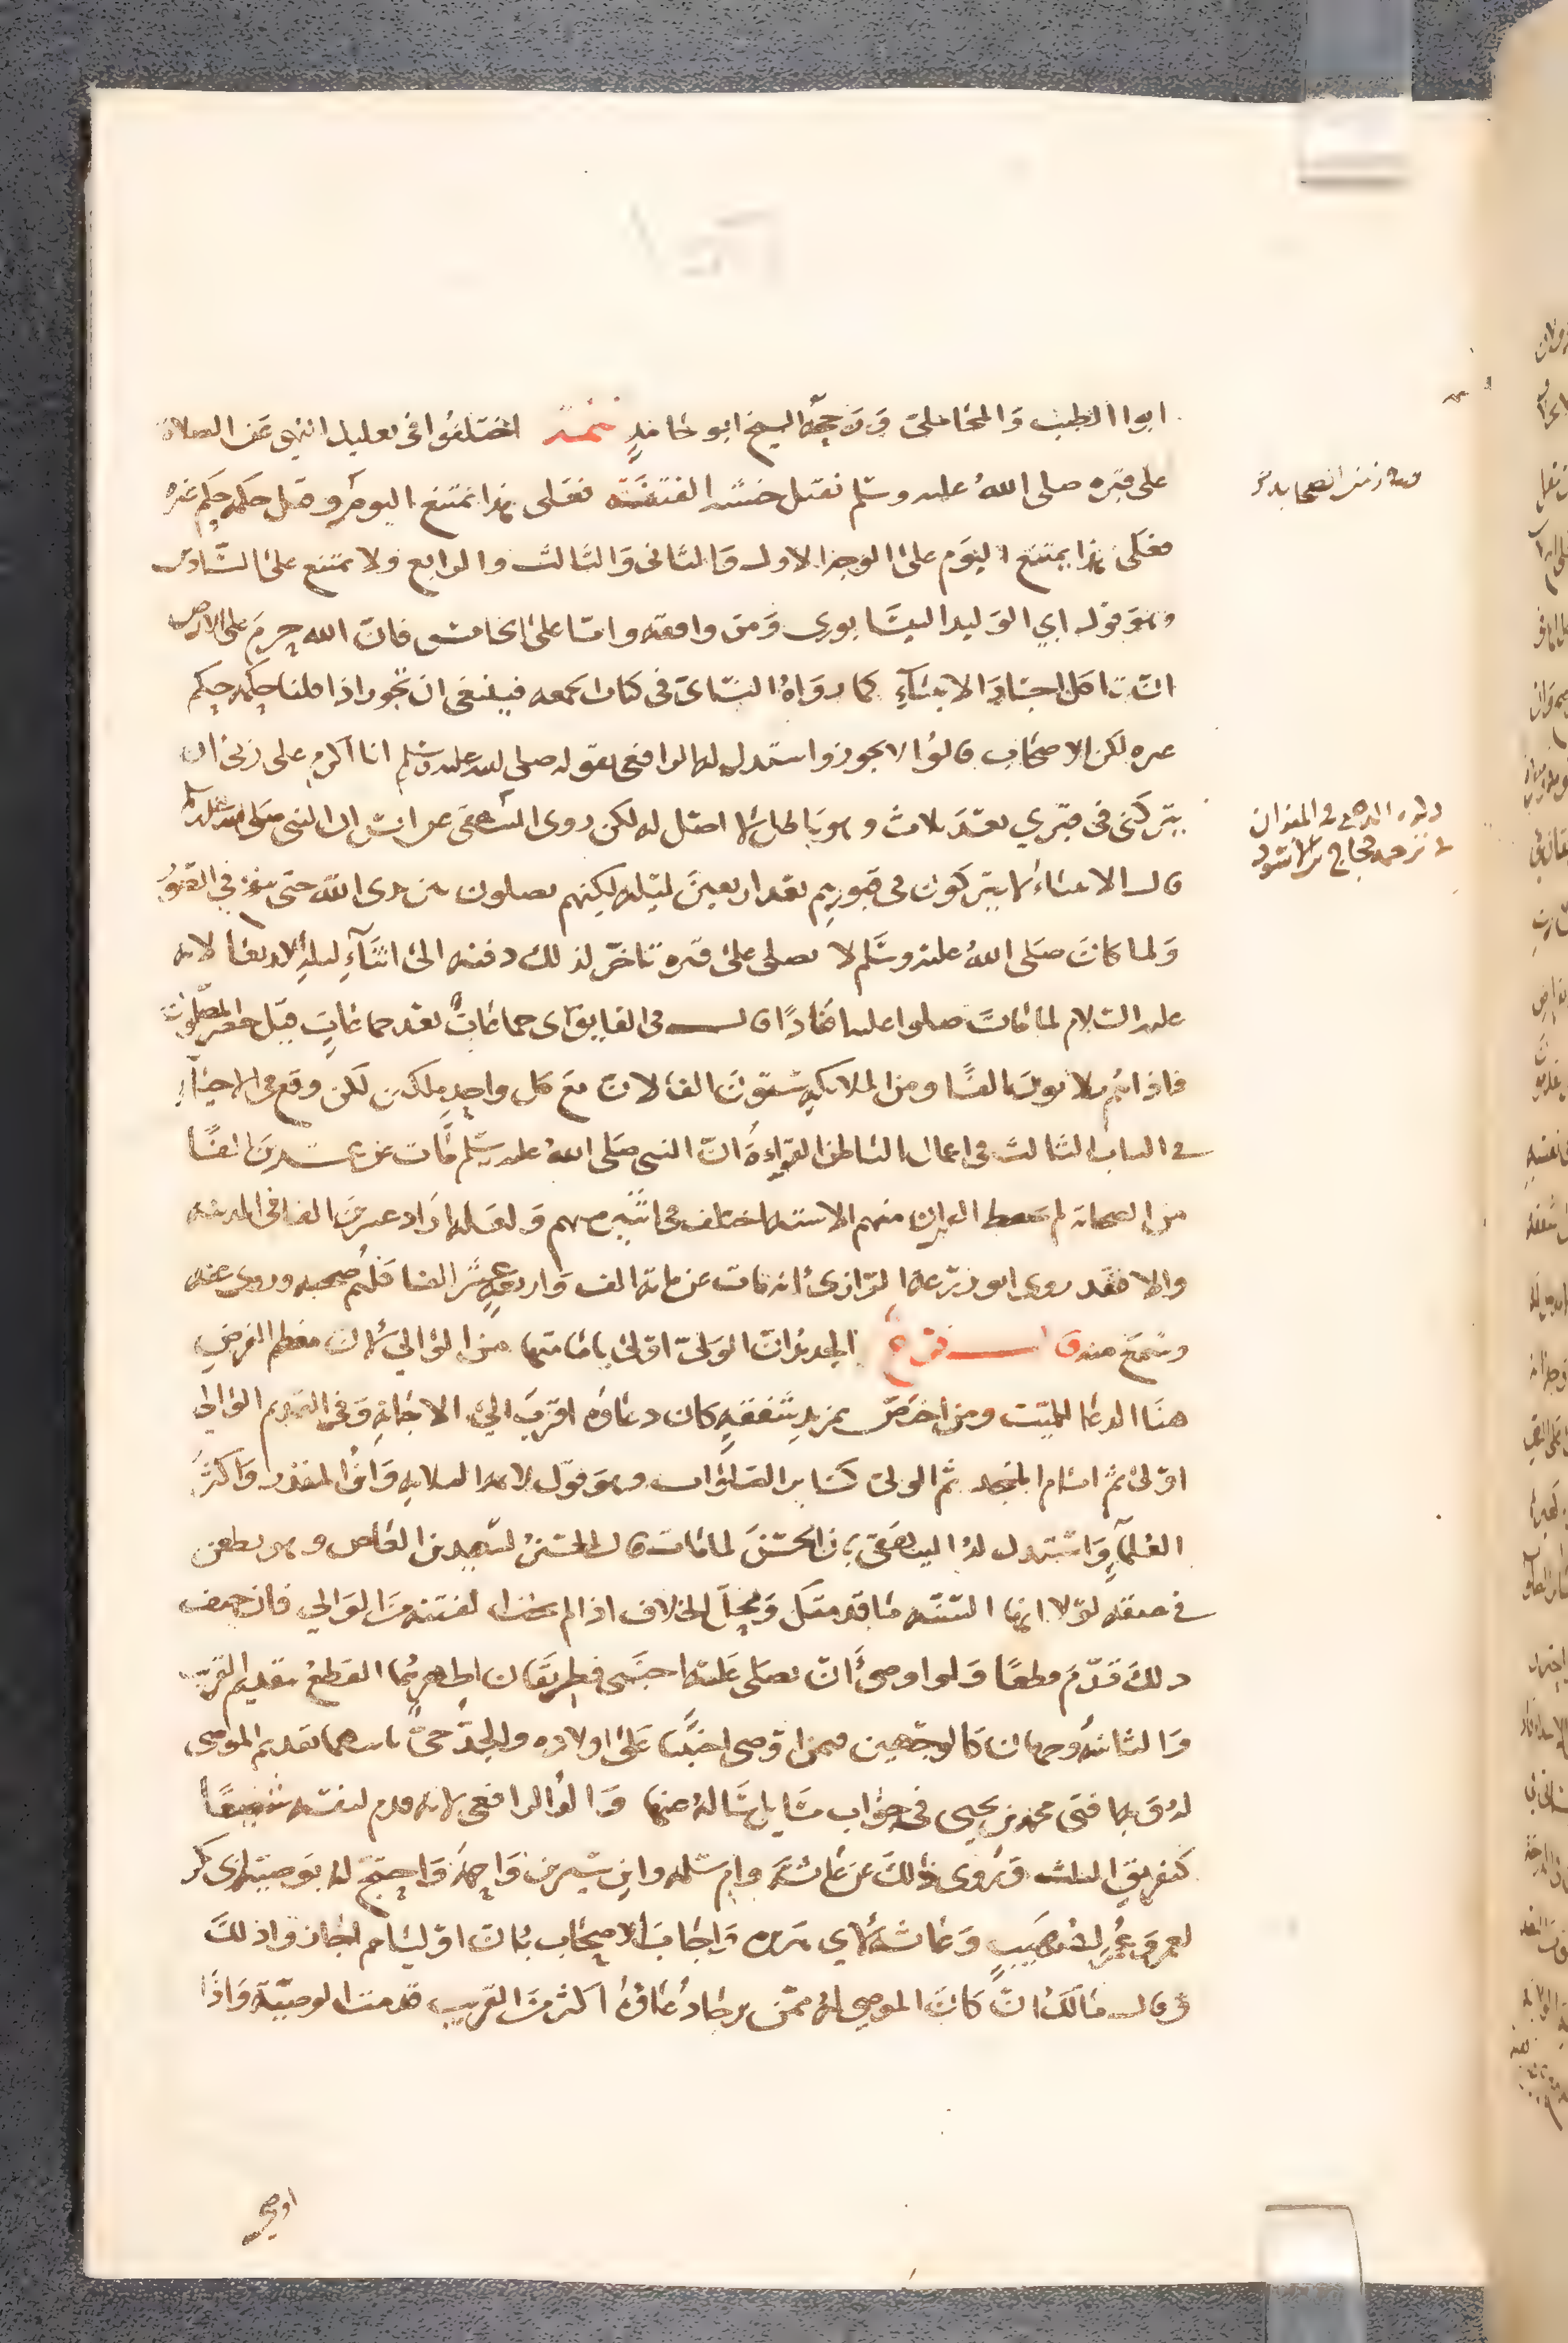 ابوا الطيب والمحاملي ورجحه الشيخ ابو حامد تتمة اختلفوا في تعليل النهي عن الصلاة
على قبره صلى الله عليه وسلم فقيل خشية الفتنة فعلى هذا تمتنع اليوم وقيل حكمه حكم غيره
فعلى هذا يمتنع اليوم على الوجه الاول والثاني والثالث والرابع ولا تمتنع على السادس
وهو قول ابي الوليد النيسابوري ومن وافقه واما على الخامس فان الله حرم على الارض
ان تاكل اجساد الانبياء كما رواه النسائي في كتاب الجمعه فينبغي ان تجوز اذا قلنا حكمه حكم
غيره لكن الاصحاب قالوا لا يجوز واستدل لها الرافعي بقوله صلى الله عليه وسلم انا اكرم على ربي ان
يتركني في قبري بعد ثلاث وهو باطل لا اصل له لكن روى البيهقي عن انس ان النبي صلى الله عليه وسلم
قال الانبياء لا يتركون في قبورهم بعد اربعين ليلة لكنهم يصلون بين يدي الله حتى ينفخ في الصور
ولما كان صلى الله عليه وسلم لا يصلى على قبره تاخر لذلك دفنه الى اثناء ليلة الاربعا لانه
عليه السلام لما مات صلوا عليه افرادا قال في الفايق اي جماعات بعد جماعات قيل حصر المصلون
فاذا هم ثلاثون الفا ومن الملائكة ستون الفا لان مع كل واحد ملكين لكن وقع في الاحياء
في الباب الثالث في اعمال الباطن القراءة ان النبي صلى الله عليه وسلم مات عن عشرين الفا
من الصحابة لم يحفظ القران منهم الا ستة اختلف في اثنين منهم ولعله اراد عشرين الفا في المدينة
والا فقد روى ابو زرعة الرازي انه مات عن ماية الف واربعة عشر الفا كلهم صحبه وروى عنه
وسمع منه قال فرع الجديد ان الولي اولى بامامتها من الوالي لان معظم الغرض
هنا الدعا للميت ومن اختص بمزيد شفقة كان دعاؤه اقرب الى الاجابة وفي القديم الوالي
اولى ثم امام المسجد ثم الولي كسائر الصلوات وهو قول الايمة الثلاثة وابن المنذر واكثر
العلماء واستدل له البيهقي بان الحسن لما مات قال الحسين لسعيد بن العاص وهو يطعن
في عنقه لولا انها السنة ما قدمتك ومحل الخلاف اذا لم يخف الفتنة من الوالي فان خيف
ذلك قدم قطعا ولو اوصى ان يصلي عليه اجنبي فطريقان اظهرهما القطع بتقديم القريب
والثاني وجهان كالوجهين فيمن اوصى اجنبيا على اولاده والجد حي باسهما تقديم الموصى
له وبها افتى محمد بن يحيى في جواب مسايل سالة عنها قال الرافعي لانه قدم لنفسه شفيعا
كتفريق الثلث وروي ذلك عن عائشة وام سلمة وابن سيرين واحمد واحتج له بوصية ابي بكر
لعمر وعمر لصهيب وعائشة لابي هريرة واجاب الاصحاب بان اولياءهم اجازوا ذلك
وقال مالك ان كان الموصى له ممن يرجا دعاؤه اكثر من القريب قدمت الوصية واذا
اوصى